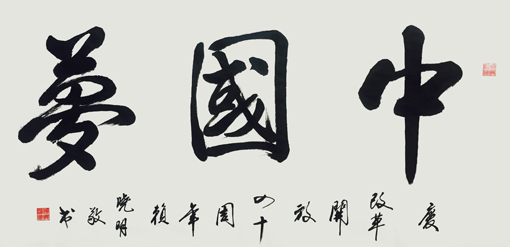 中國夢
慶改革開放四十周年晓明敬书